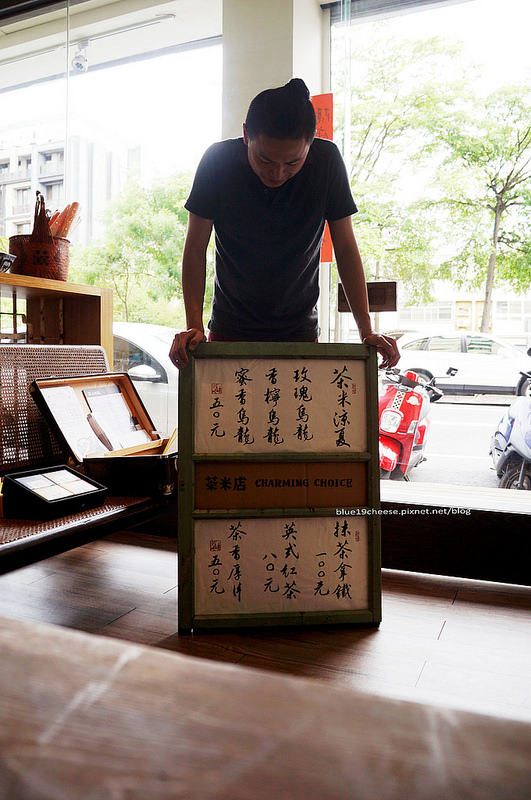 茶米涼夏
玫瑰烏龍
香檸烏龍
蜜香烏龍
五〇元
茶米店 CHARMING CHOICE
抹茶拿鐵
一〇〇元
英式紅茶
八〇元
茶香厚片
五〇元
blue19cheese.pixnet.net/blog